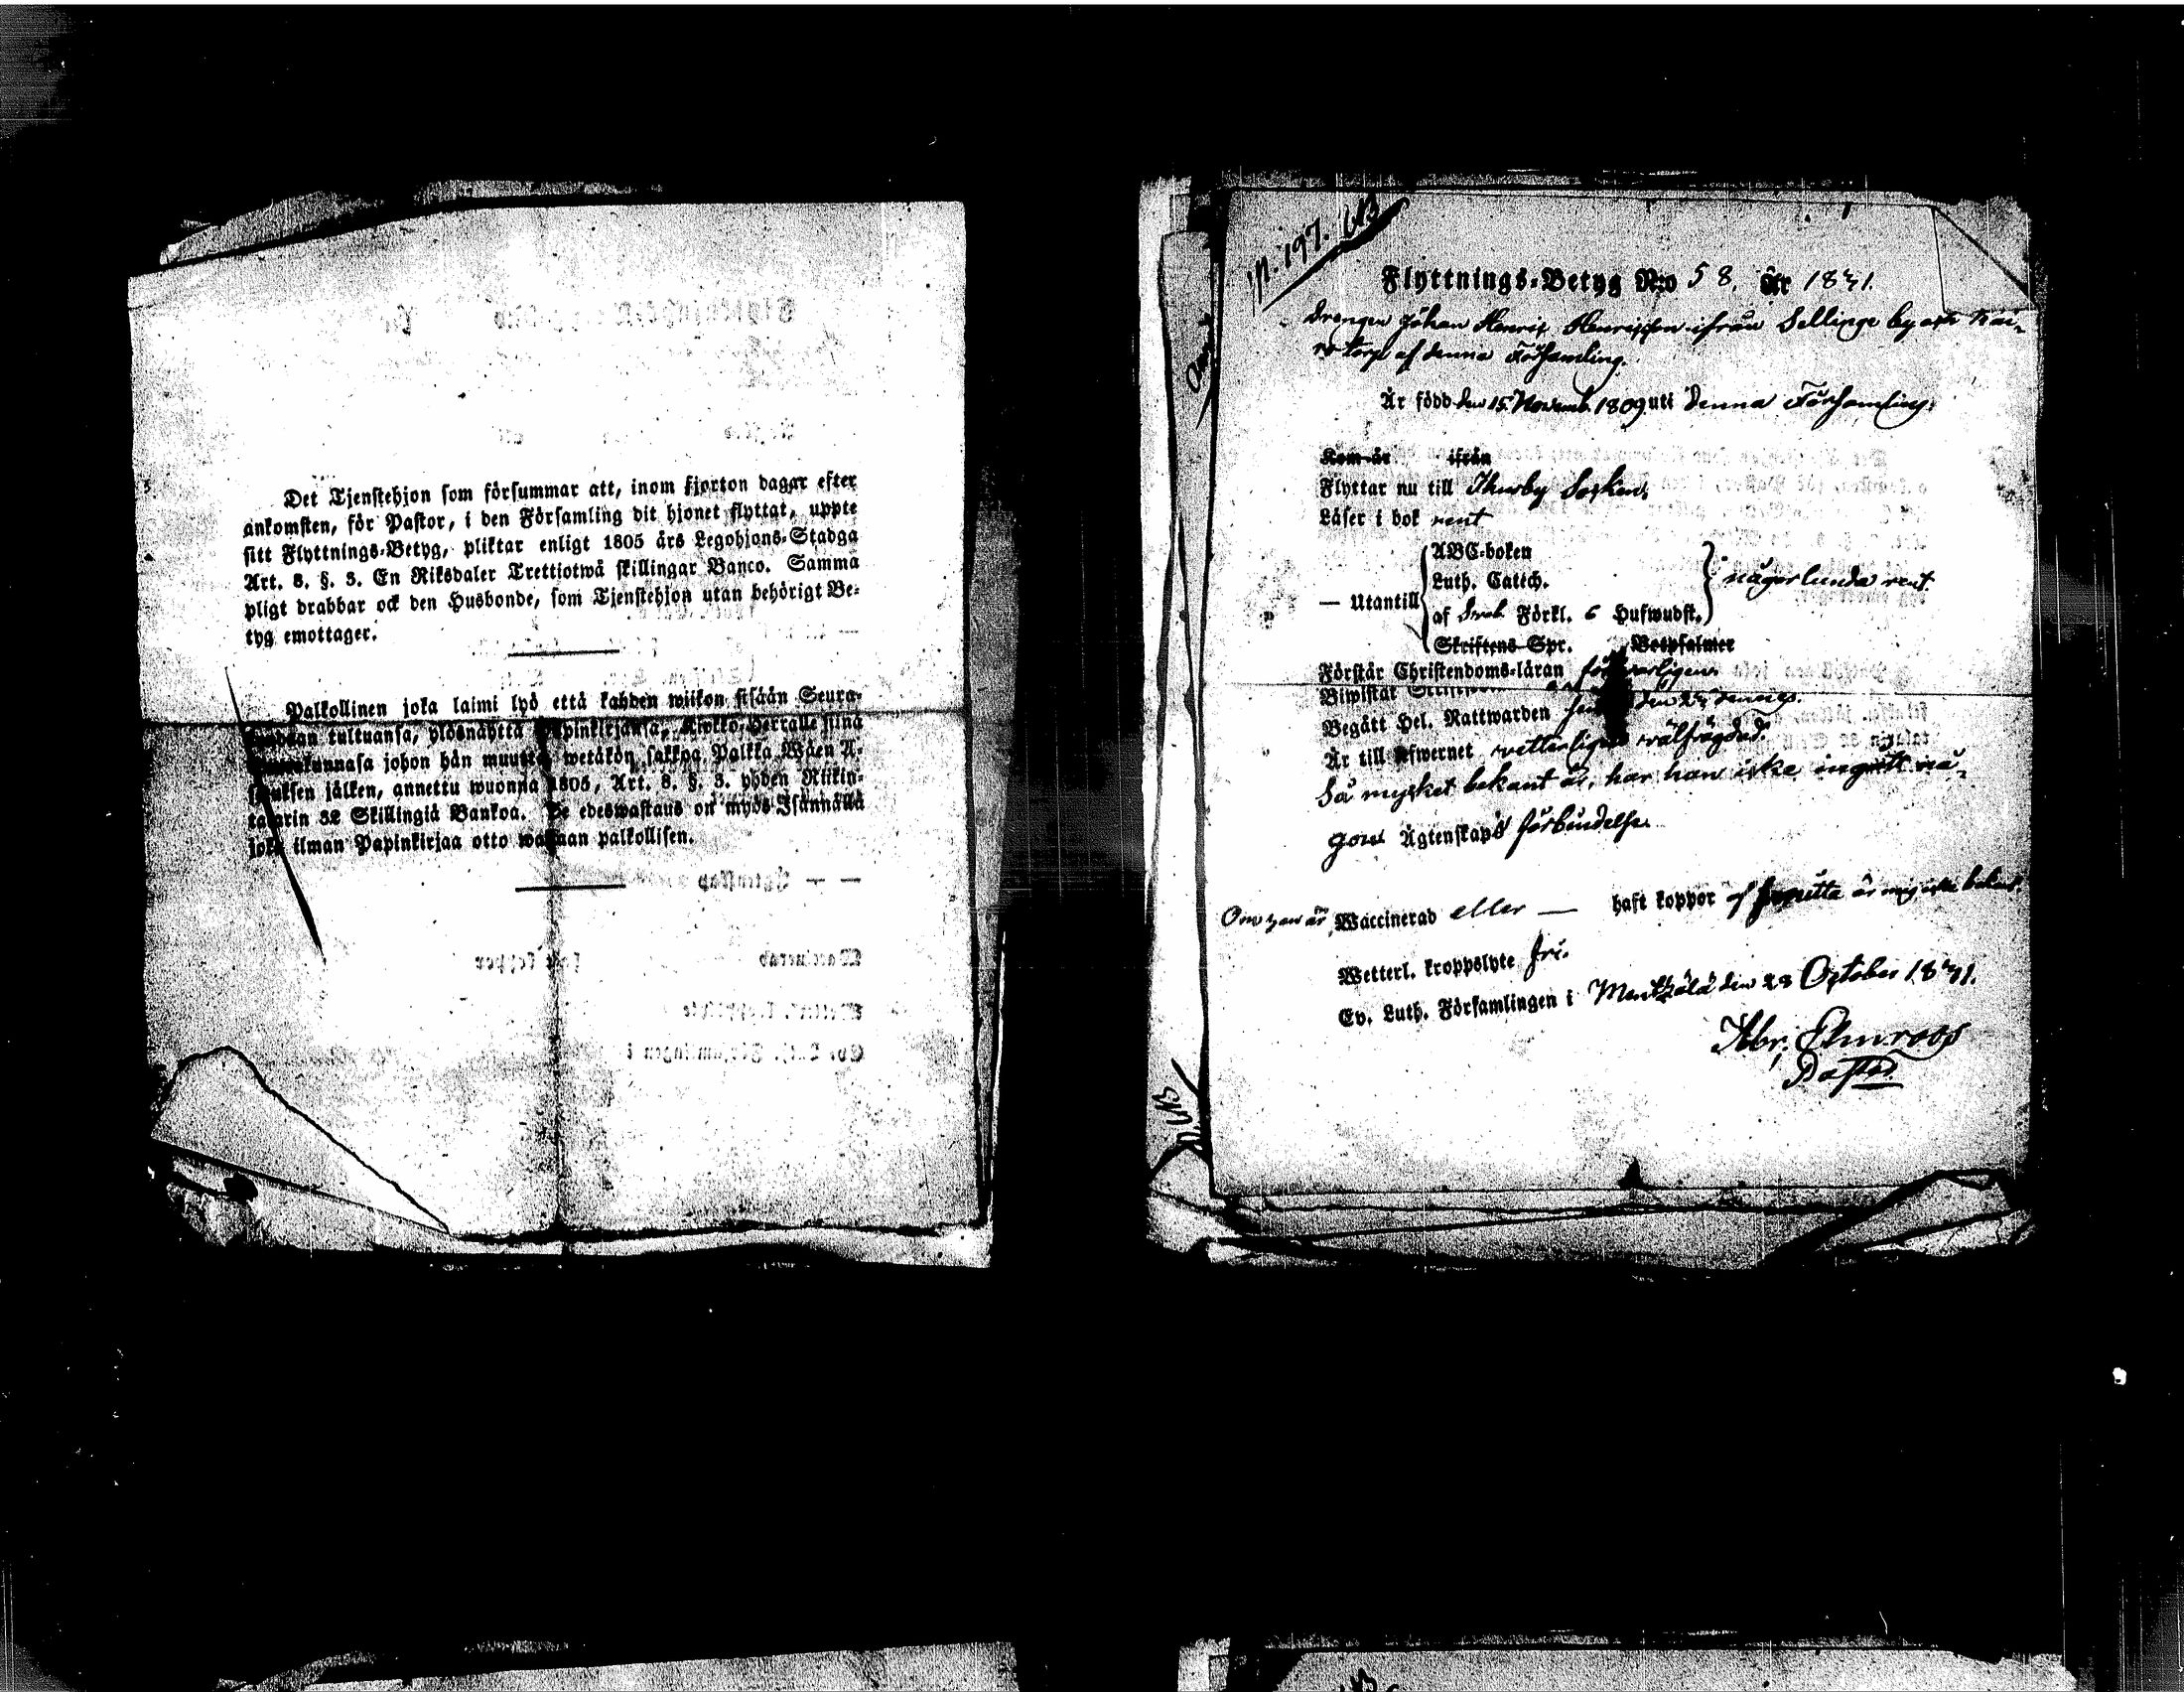 Det Tjenstehjon som försummar att, inom fjorton dagar efter
ankomsten, för Pastor, i den Församling dit hjonet flyttat, uppte
sitt Flyttnings-Betyg, pliktar enligt 1805 års Legohjons-Stadga
Art. 8. §. 3. En Riksdaler Trettiotwå skillingar Banco. Samma
pligt drabbar ock den Husbonde, som Tjenstehjon utan behörigt Be-
tyg emottager.
Palkollinen joka laimi lyö että kahden wiikon sisään Seura-
tultuansa, ylösnäyttä Kirkko-Herralle siinä
johon hän muutta wetäkön sakkoa Palkka Wäen A-
jälken, annettu wuonna 1805, Art. 8. §. 3. yhden Riikin-
talarin 32 Skillingiä Bankoa. Se edeswastaus on myös Isännällä
joka ilman Papinkirjaa otto wastaan palkollisen.
p. 197.
Flyttnings-Betyg N:o 58. År 1841.
Drengen Johan Henric Henricsson ifrån Sellinge by och
torp af denna Församling.
Är född den 15 Novemb. 1809 uti denna Församling.
Kom år ifrån
Flyttar nu till Thusby Socken.
Läser i bok rent
ABC-boken
Luth. Catech.
någorlunda rent.
— Utantill
af Förkl. 6 Hufwudst.
Skriftens Spr. Botpsalmer
Förstår Christendoms-läran
Biwistat
Begått Hel. Nattwarden den
Är till Lefwernet vetterligen välfrägdad.
Så mycket bekant är, har han icke ingått nå-
gon Ägtenskaps förbindelse.
Om han är Waccinerad eller — haft koppor är mig icke bekant.
Wetterl. kroppslyte fri.
Ev. Luth. Församlingen i Mentzälä den 28 October 1841.
Abr. Elmroos
Pastor.